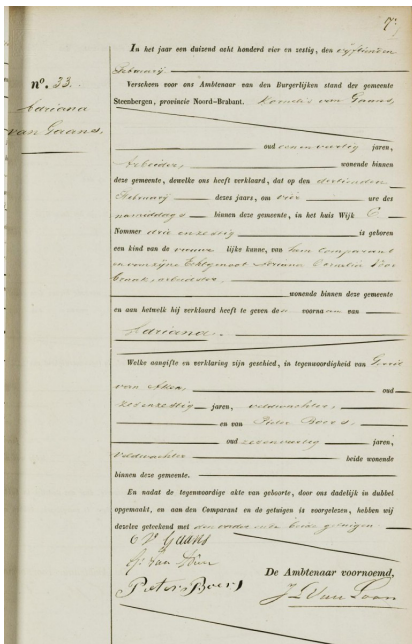 7
In het jaar een duizend acht honderd vier en zestig, den vijftienden
Februarij
n°. 33.
Verscheen voor ons Ambtenaar van den Burgerlijken stand der gemeente
Adriana
Steenbergen, provincie Noord-Brabant. Kornelis van Gaans,
van Gaans,
oud eenenveertig jaren,
Arbeider, wonende binnen
deze gemeente, dewelke ons heeft verklaard, dat op den dertienden
Februarij dezes jaars, om vier ure des
namiddags binnen deze gemeente, in het huis Wijk C
Nommer drie en zestig is geboren
een kind van de vrouwelijke kunne, van hem Comparant
en van zijne Echtgenoot Adriana Cornelia
arbeidster,
wonende binnen deze gemeente
en aan hetwelk hij verklaard heeft te geven den voornaam van
Adriana.
Welke aangifte en verklaring zijn geschied, in tegenwoordigheid van Gerrit
van oud
zevenzestig jaren, veldwachter,
en van Pieter Boers,
oud zevenveertig jaren,
Veldwachter beide wonende
binnen deze gemeente.
En nadat de tegenwoordige akte van geboorte, door ons dadelijk in dubbel
opgemaakt, en aan den Comparant en de getuigen is voorgelezen, hebben wij
dezelve geteekend met den vader en de beide getuigen.
C V Gaans
Pieter Boers
De Ambtenaar voornoemd,
Van Loon